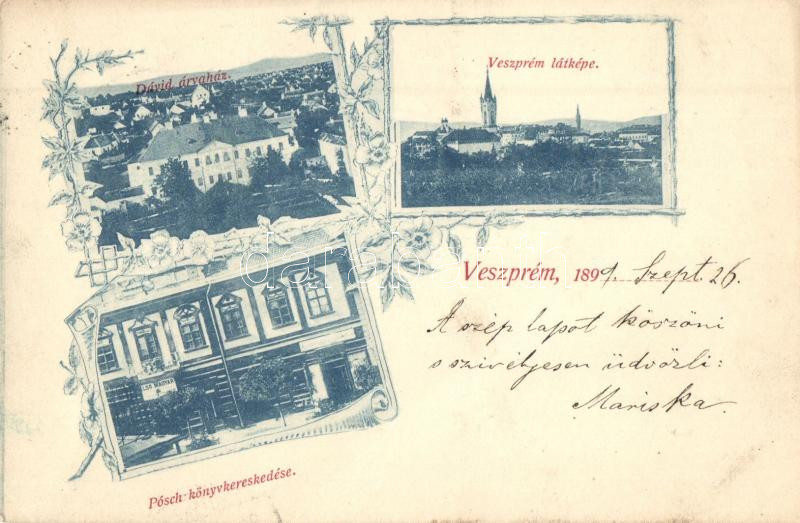 Dávid árvaház.
Veszprém látképe.
Veszprém, 1899. Szept. 26.
A szép lapot köszöni
s szivélyesen üdvözli:
Mariska.
ELSŐ MAGYAR
Pósch-könyvkereskedése.